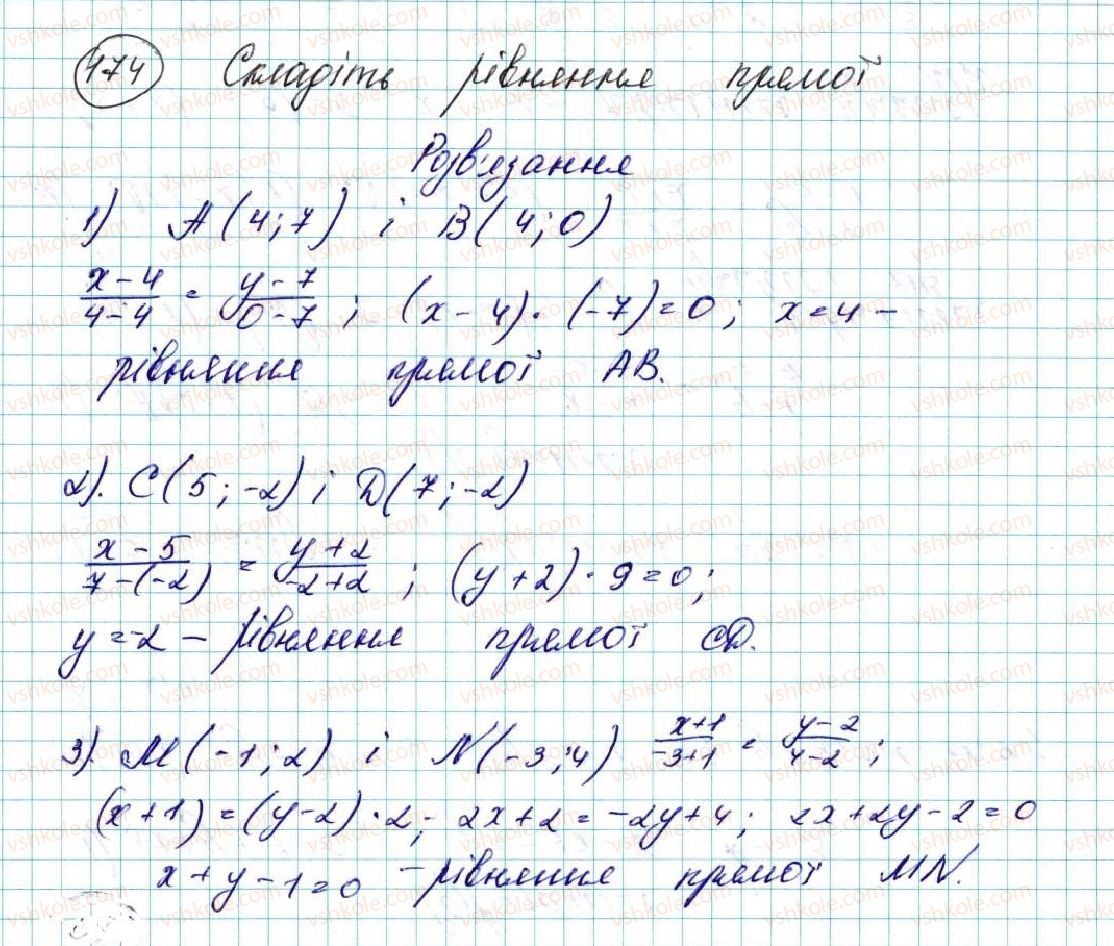 474 Складіть рівняння прямої
Розв'язання
1) A(4;7) і B(4;0)
x-4/4-4 = y-7/0-7; (x-4)·(-7)=0; x=4 –
рівняння прямої AB.
2). C(5;-2) і D(7;-2)
x-5/7-(-2) = y+2/-2+2; (y+2)·9=0;
y=-2 – рівняння прямої CD.
3). M(-1;2) і N(-3;4) x+1/-3+1 = y-2/4-2;
(x+1)=(y-2)·2; 2x+2=-2y+4; 2x+2y-2=0
x+y-1=0 – рівняння прямої MN.